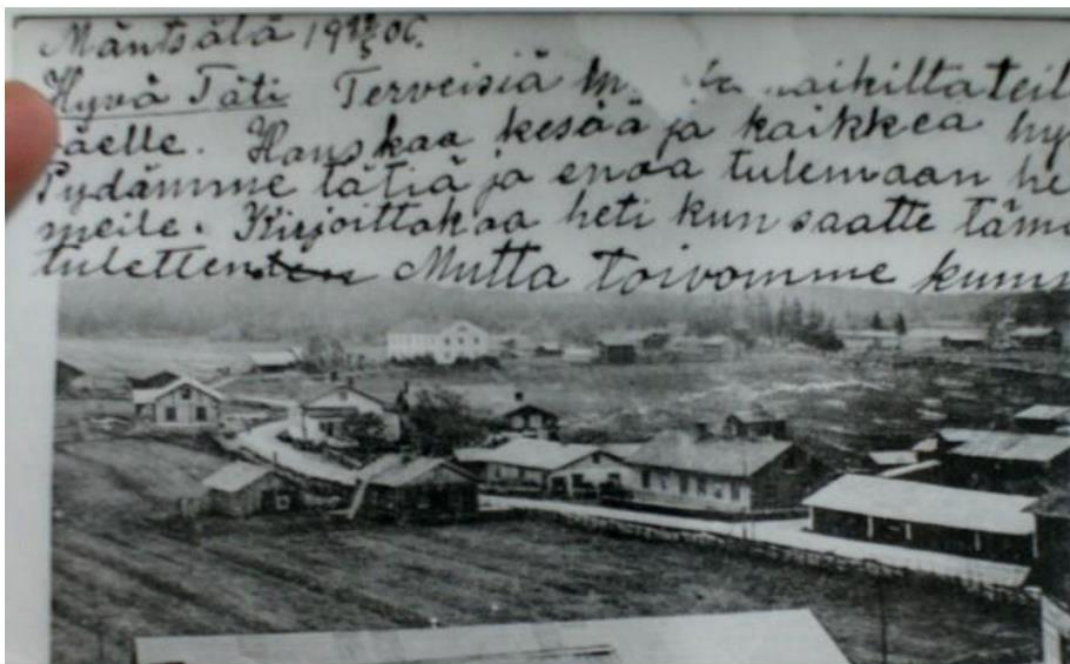 Mäntsälä 19 06.
Hyvä Täti Terveisiä
äelle. Hauskaa kesää ja kaikkea hy
Pydämme tätiä ja enoa tulemaan he
meile. Kirjoittakaa heti kun saatte täm
tulette Mutta toivomme kumm